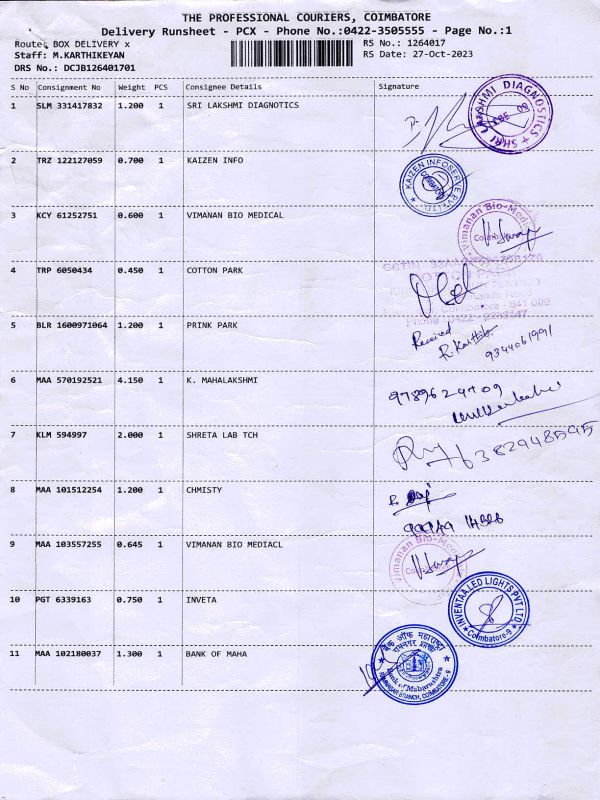 THE PROFESSIONAL COURIERS, COIMBATORE
Delivery Runsheet - PCX - Phone No.:0422-3505555 - Page No.:1
Route: BOX DELIVERY x
RS No.: 1264017
Staff: M.KARTHIKEYAN
RS Date: 27-Oct-2023
DRS No.: DCJB126401701
S No Consignment No Weight PCS Consignee Details Signature
1 SLM 331417832 1.200 1 SRI LAKSHMI DIAGNOTICS
SHRI LAKSHMI DIAGNOSTICS
2 TRZ 122127059 0.700 1 KAIZEN INFO
KAIZEN INFOSERVE PVT LTD
3 KCY 61252751 0.600 1 VIMANAN BIO MEDICAL
Vimanan Bio-Med
4 TRP 6050434 0.450 1 COTTON PARK
5 BLR 1600971064 1.200 1 PRINK PARK
Received
R. Karthik
9344061991
6 MAA 570192521 4.150 1 K. MAHALAKSHMI
7 KLM 594997 2.000 1 SHRETA LAB TCH
8 MAA 101512254 1.200 1 CHMISTY
9 MAA 103557255 0.645 1 VIMANAN BIO MEDIACL
Vimanan Bio-Med
10 PGT 6339163 0.750 1 INVETA
INVENTAA LED LIGHTS PVT LTD
Coimbatore-9
11 MAA 102180037 1.300 1 BANK OF MAHA
बैंक ऑफ महाराष्ट्र
रामनगर शाखा
Bank of Maharashtra
RAMNAGAR BRANCH, COIMBATORE - 9